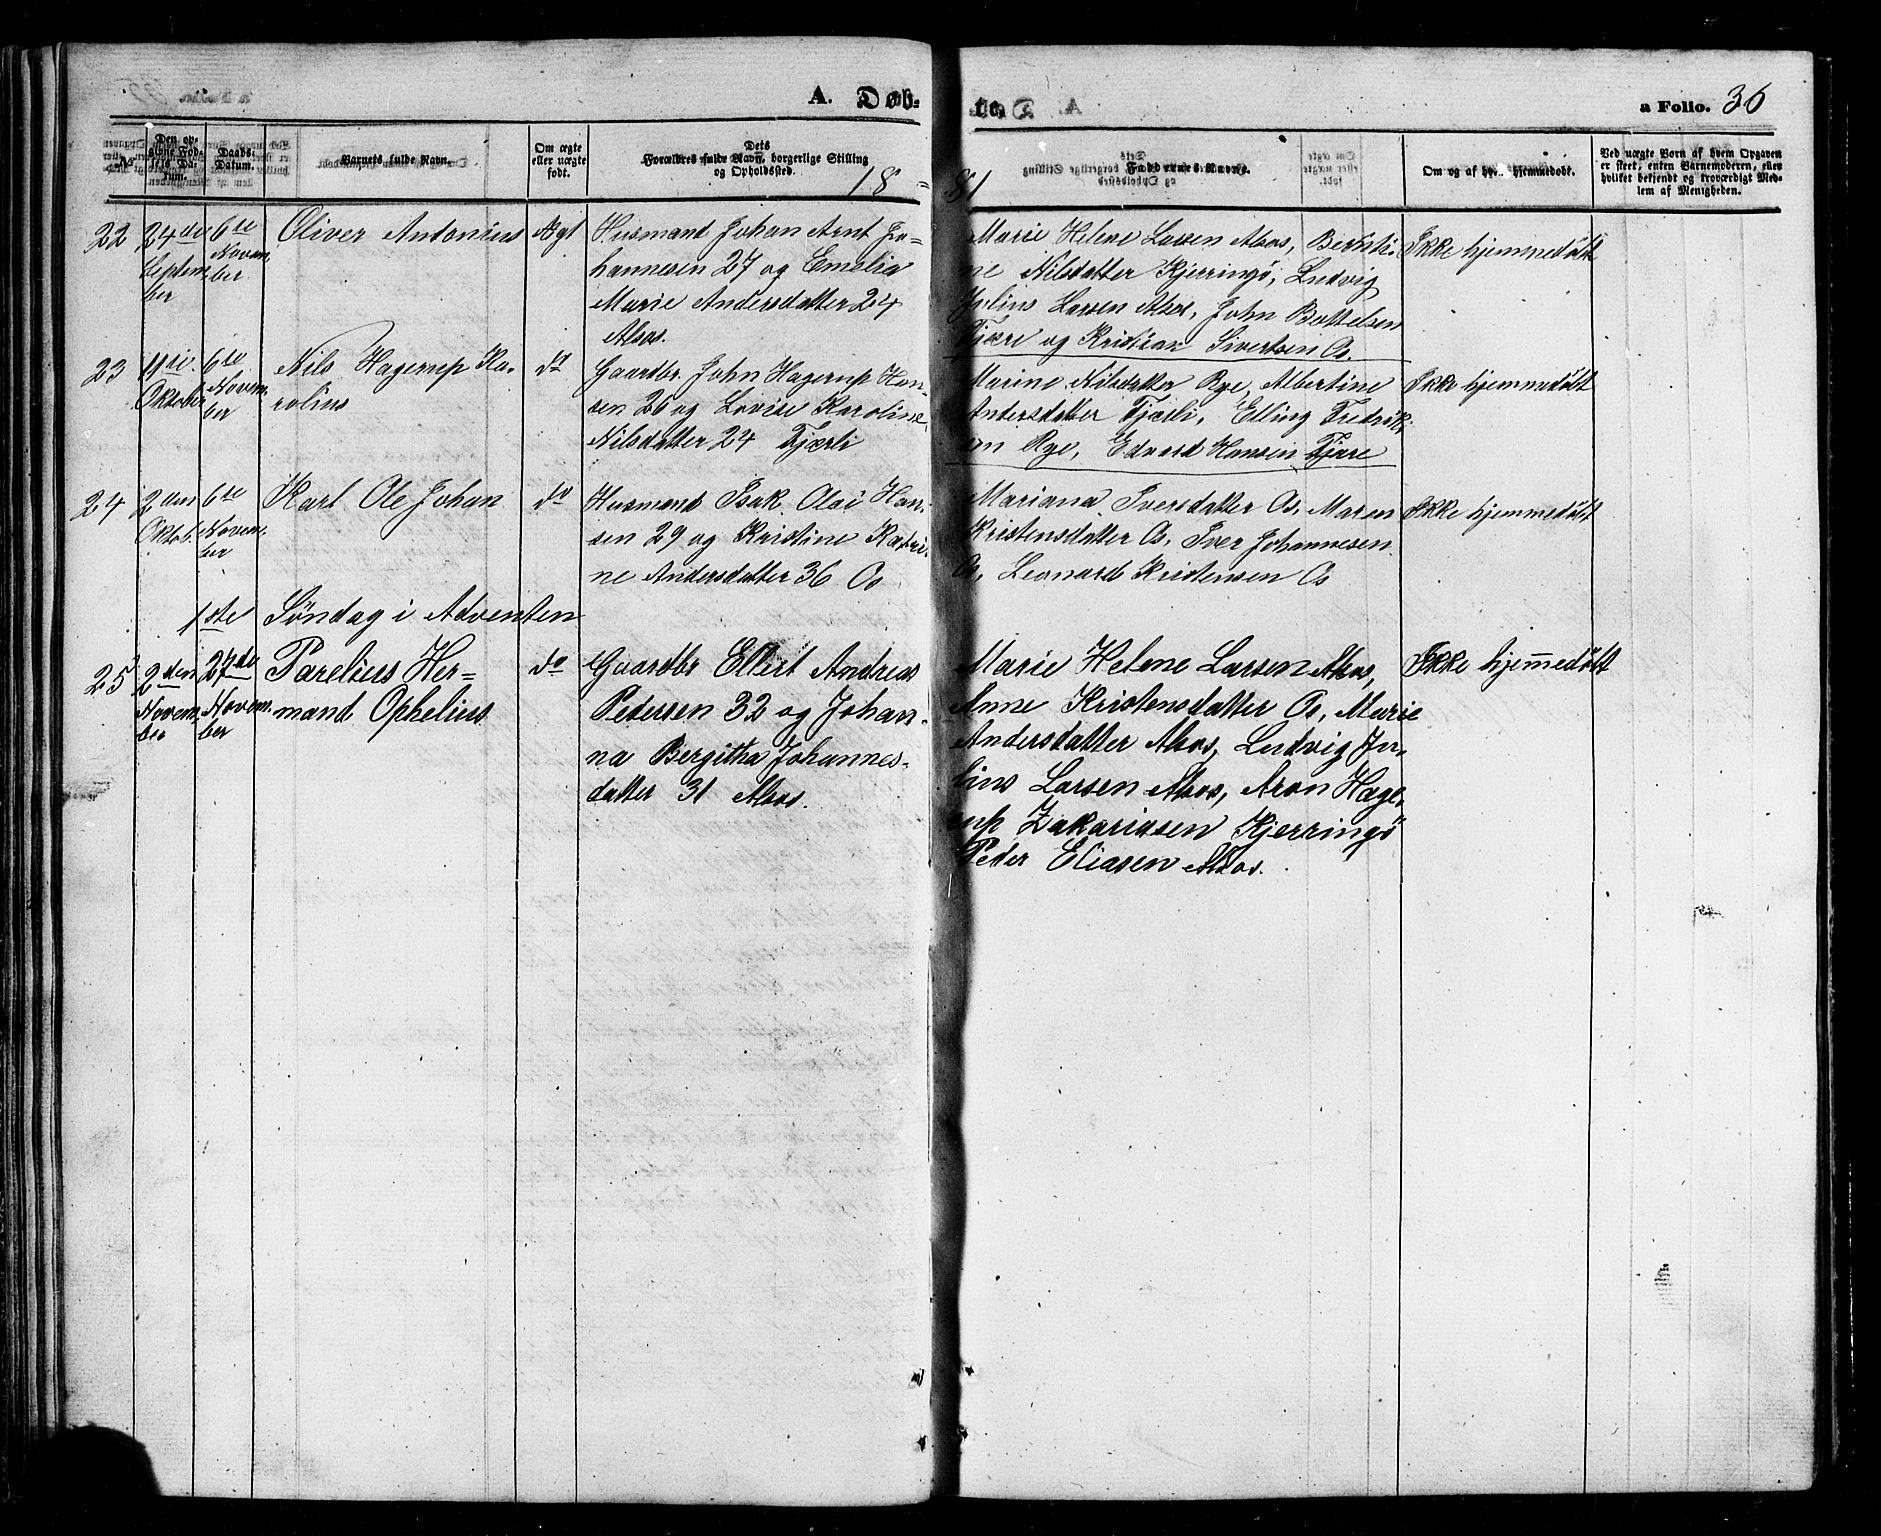 A. Døb-
te.
a Folio. 36
No.
Den op-
givne Fød-
sels Da-
tum.
Daabs-
Datum.
Barnets fulde Navn.
Om ægte
eller uægte
født.
Dets
Forældres fulde Navn, borgerlige Stilling
og Opholdssted.
Faddernes Navne.
Om og af hvem hjemmedøbt.
Ved uægte Børn af hvem Opgaven
er skeet, enten Barnemoderen, eller
hvilket bekjendt og troværdigt Med-
lem af Menigheden.
18 = 81
22
24de
Septem
ber
6te
Novem
ber
Oliver Antonius
Ægt
Husmand Johan Arnt Jo=
hannesen 27 og Emelia
Marie Andersdatter 24
Alsos.
Marie Helene Larsen Alsos, Bernti-
ne Nilsdatter Kjerringö, Ludvig
Julius Larsen Alsos, John Bottelsen
Fjære og Kristian Sivertsen Os.
Ikke hjemmedøbt
23
11te
Oktober
6te
Novem
ber
Nils Hagerup Ka-
rolius
do
Gaardbr. John Hagerup Han-
sen 26 og Lovise Karoline
Nilsdatter 24 Fjærli
Marine Nilsdatter Rye, Albertine
Andersdatter Fjærli, Elling Fredrik-
sen Rye, Edvard Hansen Fjære
Ikke hjemmedøbt
24
2den
Oktob.
6te
Novem.
ber
Karl Ole Johan
do
Husmand Isak Olai Han-
sen 29 og Kristine Katri-
ne Andersdatter 36 Os
Mariana Iversdatter Os, Maren
Kristensdatter Os, Iver Johannesen
Os, Leonard Kristensen Os
Ikke hjemmedøbt
1ste Söndag i Adventen
25
2den
Novem-
ber
27de
Novem-
ber
Parelius Her=
mand Ophelius
do
Gaardbr Ellert Andreas
Pedersen 32 og Johan-
na Bergitha Johannes-
datter 31 Alsos.
Marie Helene Larsen Alsos,
Anne Kristensdatter Os, Marie
Andersdatter Alsos, Ludvig Ju-
lius Larsen Alsos, Aron Hage-
rup Zakariasen Kjerringö
Peder Eliasen Alsos.
Ikke hjemmedøbt